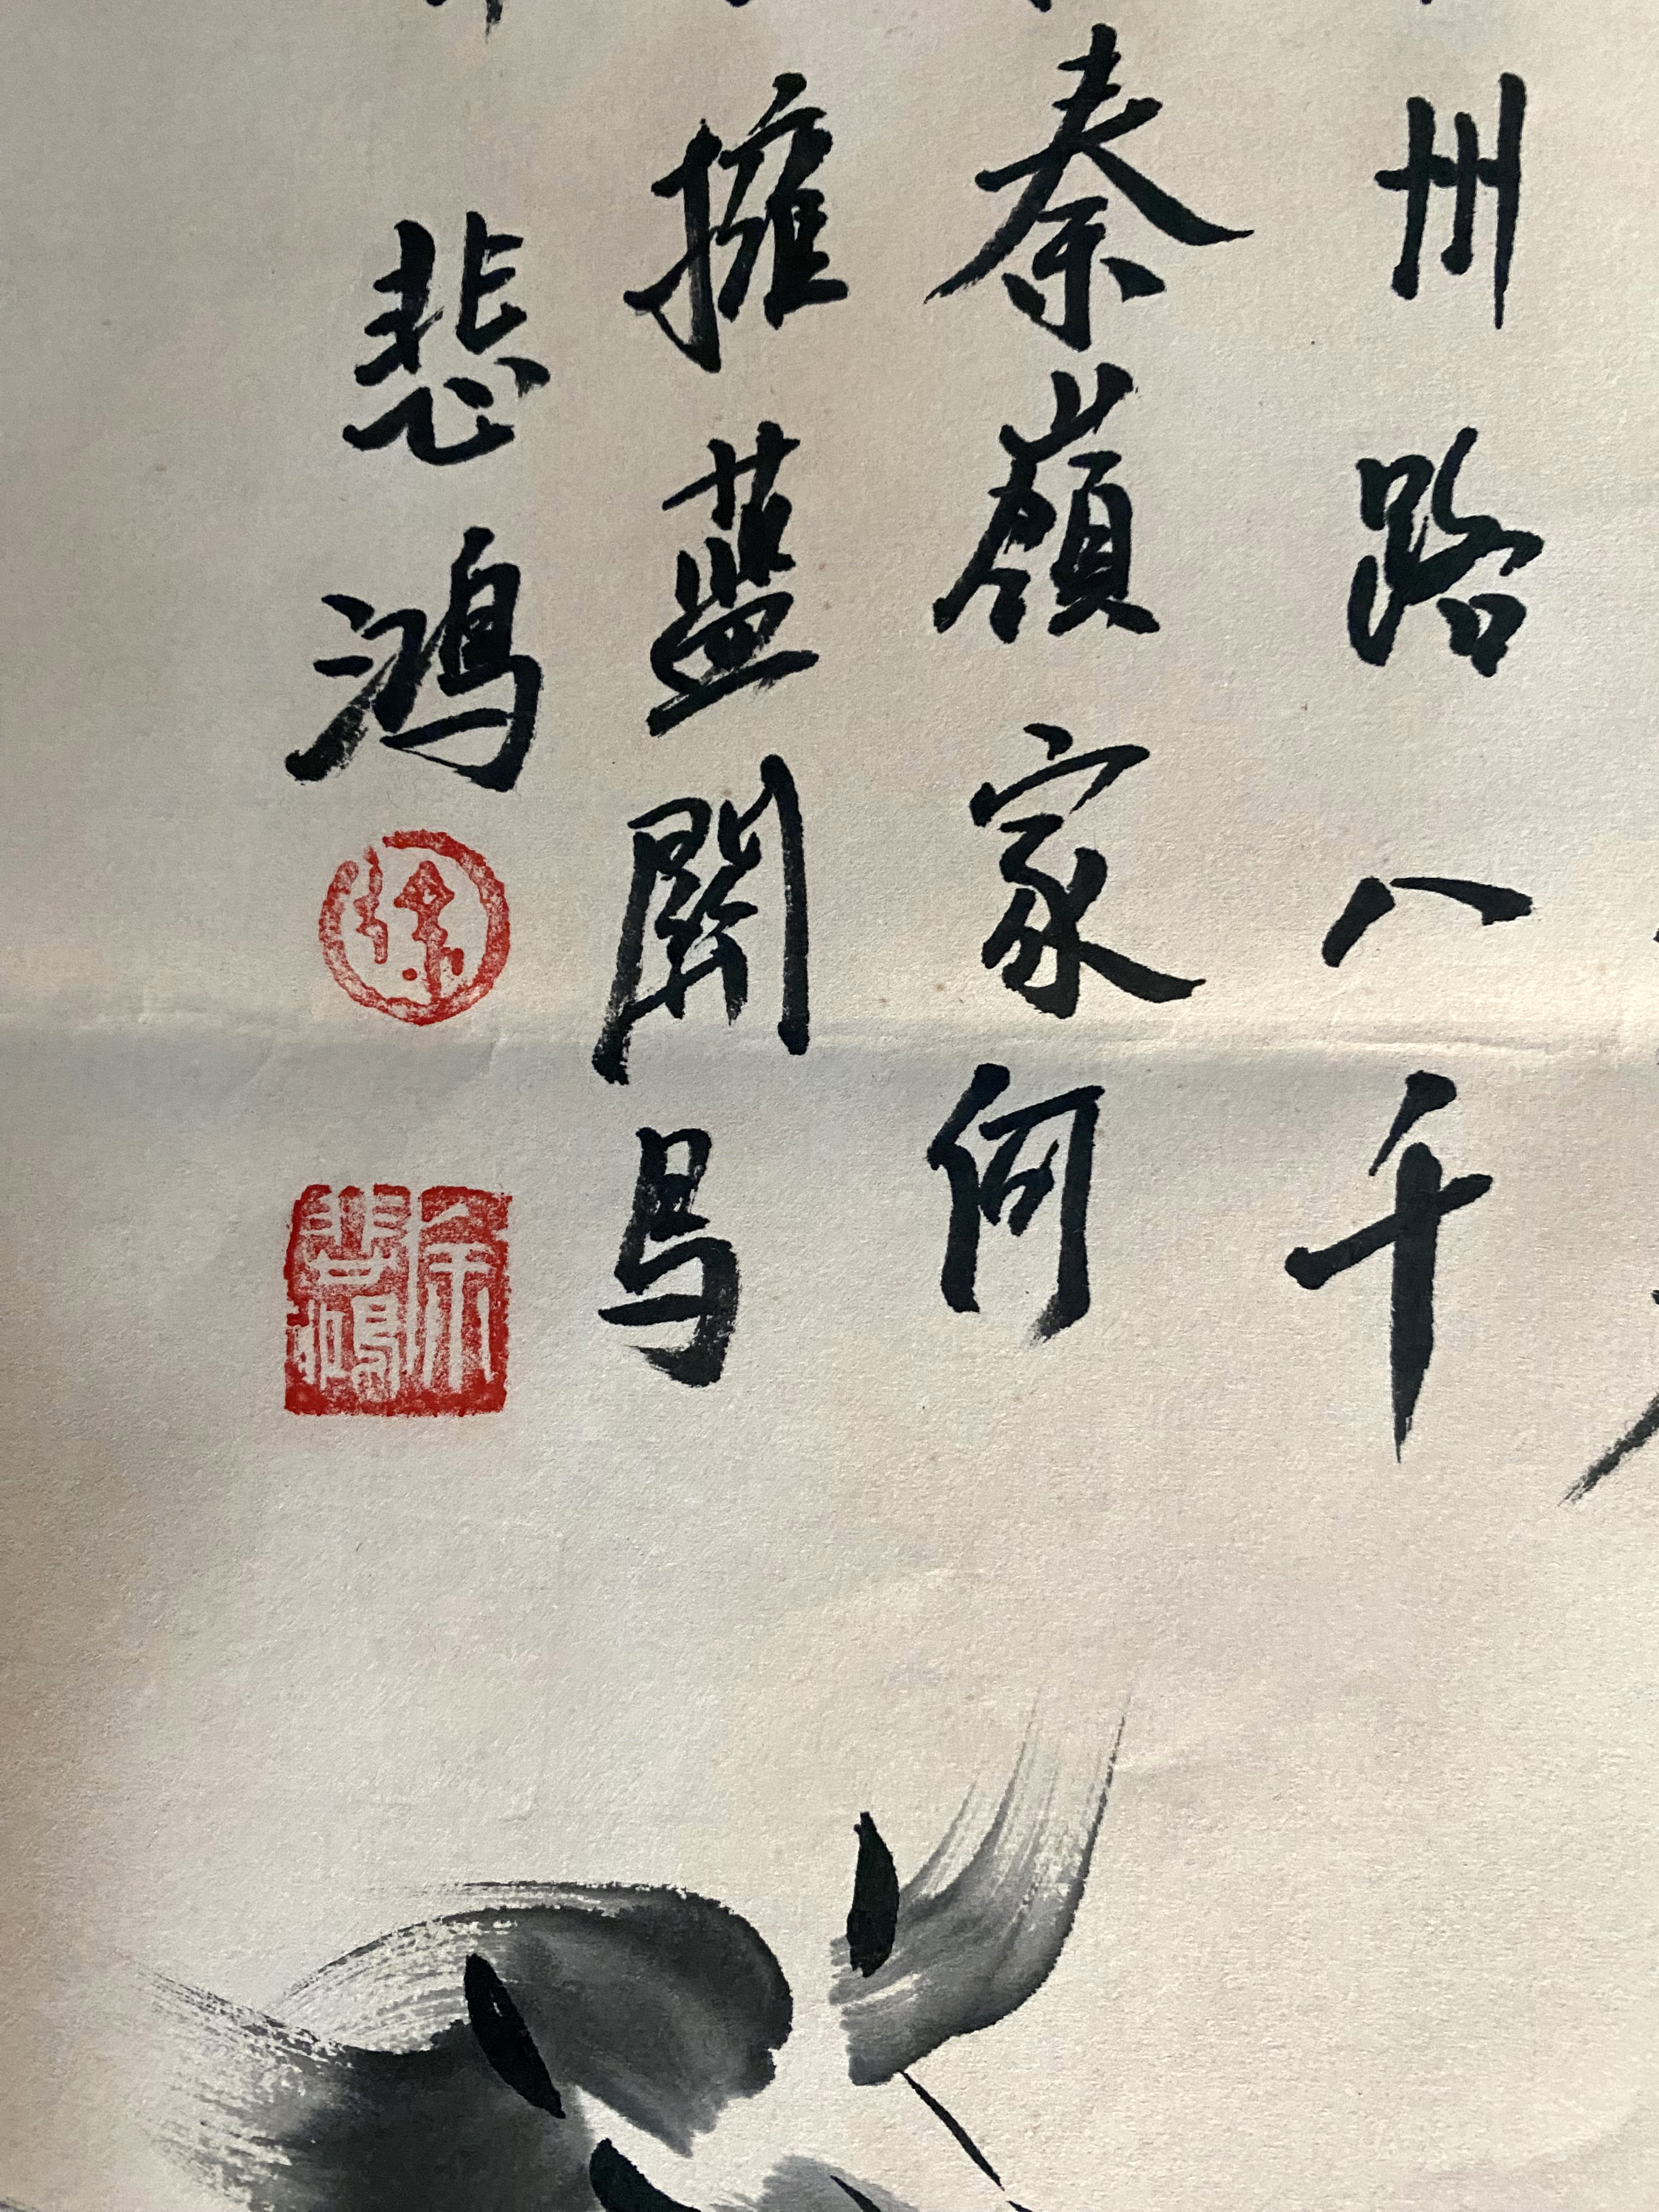 州路八千
秦嶺家何
擁藍關马
悲鴻
徐
徐悲鴻